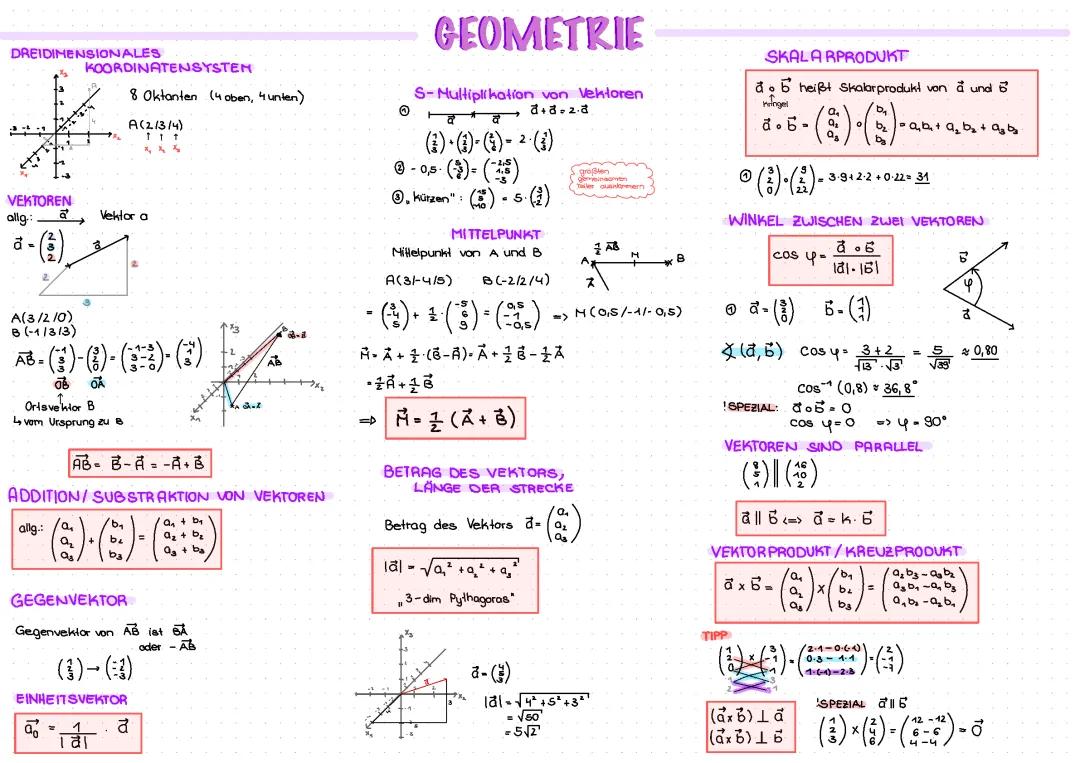 GEOMETRIE
DREIDIMENSIONALES
KOORDINATENSYSTEM
8 Oktanten (4 oben, 4 unten)
A(2/3/4)
x₁ x₂ x₃
VEKTOREN
allg.: a⃗ Vektor a
a⃗ = (2 3 2)
A(3/2/0)
B(-1/3/3)
AB⃗ = (-1 3 3) - (3 2 0) = (-1-3 3-2 3-0) = (-4 1 3)
OB⃗ OA⃗
Ortsvektor B
↳ vom Ursprung zu B
AB⃗ = B⃗ - A⃗ = -A⃗ + B⃗
ADDITION/SUBSTRAKTION VON VEKTOREN
allg.: (a₁ a₂ a₃) + (b₁ b₂ b₃) = (a₁ + b₁ a₂ + b₂ a₃ + b₃)
GEGENVEKTOR
Gegenvektor von AB⃗ ist BA⃗
oder - AB⃗
(1 2 3) → (-1 -2 -3)
EINHEITSVEKTOR
a₀⃗ = 1/|a⃗| · a⃗
S-Multiplikation von Vektoren
① a⃗ a⃗ a⃗ + a⃗ = 2·a⃗
(1 2 3) + (1 2 3) = (2 4 6) = 2·(1 2 3)
② -0,5·(5 -3 6) = (-2,5 1,5 -3)
③ „kürzen": (15 5 -10) = 5·(3 1 -2)
größten
gemeinsamen
Teiler ausklammern
MITTELPUNKT
Mittelpunkt von A und B
½ AB⃗
A M B
A(3/-4/5) B(-2/2/4)
= (3 -4 5) + ½·(-5 6 9) = (0,5 -1 -0,5) => M(0,5/-1/-0,5)
M⃗ = A⃗ + ½·(B⃗-A⃗) = A⃗ + ½B⃗ - ½A⃗
= ½A⃗ + ½B⃗
=> M⃗ = ½ (A⃗ + B⃗)
BETRAG DES VEKTORS,
LÄNGE DER STRECKE
Betrag des Vektors a⃗ = (a₁ a₂ a₃)
|a⃗| = √(a₁² + a₂² + a₃²)
„3-dim Pythagoras"
a⃗ = (4 5 3)
|a⃗| = √(4² + 5² + 3²)
= √50
= 5√2
SKALARPRODUKT
a⃗ ∘ b⃗ heißt Skalarprodukt von a⃗ und b⃗
Kringel
a⃗ ∘ b⃗ = (a₁ a₂ a₃) ∘ (b₁ b₂ b₃) = a₁b₁ + a₂b₂ + a₃b₃
① (3 2 0) ∘ (9 2 22) = 3·9+2·2+0·22 = 31
WINKEL ZWISCHEN ZWEI VEKTOREN
cos φ = a⃗ ∘ b⃗ / |a⃗|·|b⃗|
b⃗
φ
a⃗
① a⃗ = (3 2 0) b⃗ = (1 1 1)
∢(a⃗,b⃗) cos φ = 3+2 / √13·√3 = 5/√39 ≈ 0,80
cos⁻¹ (0,8) ≈ 36,8°
!SPEZIAL: a⃗ ∘ b⃗ = 0
cos φ = 0 => φ = 90°
VEKTOREN SIND PARALLEL
(8 5 1) || (16 10 2)
a⃗ || b⃗ <=> a⃗ = k·b⃗
VEKTORPRODUKT/KREUZPRODUKT
a⃗ x b⃗ = (a₁ a₂ a₃) x (b₁ b₂ b₃) = (a₂b₃ - a₃b₂ a₃b₁ - a₁b₃ a₁b₂ - a₂b₁)
TIPP
(1 2 0) x (3 -1 1) = (2·1 - 0·(-1) 0·3 - 1·1 1·(-1) - 2·3) = (2 -1 -7)
1 3
2 -1
(a⃗ x b⃗) ⊥ a⃗
(a⃗ x b⃗) ⊥ b⃗
!SPEZIAL a⃗ || b⃗
(1 2 3) x (2 4 6) = (12 - 12 6 - 6 4 - 4) = 0⃗